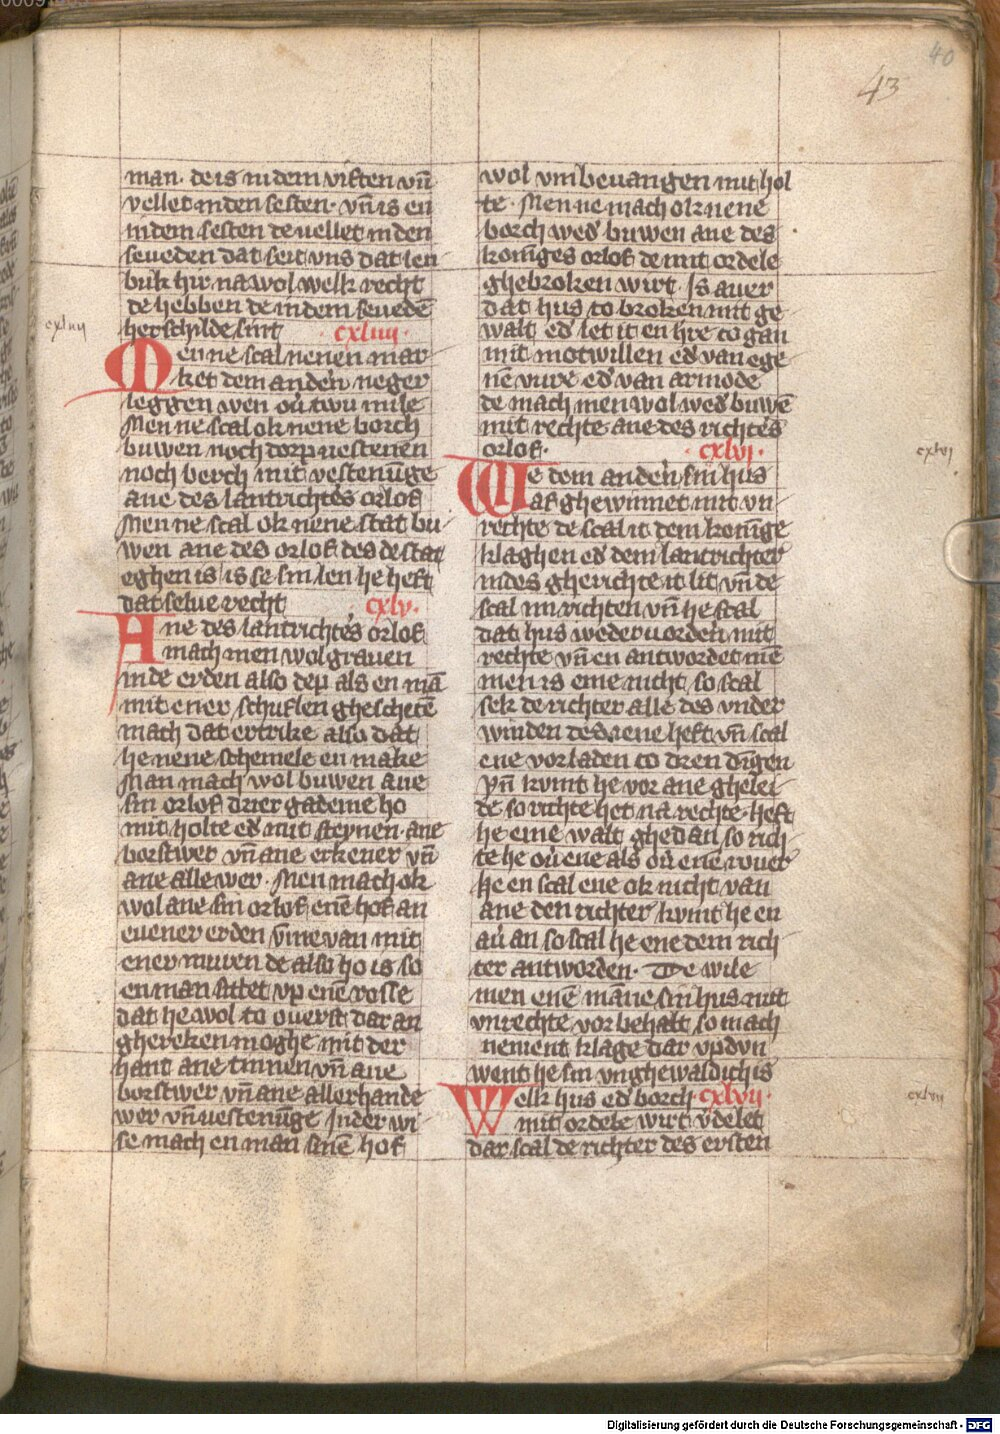 40
43
man. de is in dem viften vn̄
vellet in den sesten. vn̄ is en
in dem sesten de uellet in den
seueden dat seit vns dat len
buk hir na wol welk recht
de hebben de in dem seuedē
herschilde sint cxliiii.
cxliiii
Men ne scal nenen mar
ket dem anden neger
leggen wen ou̇ twu mile
Men ne scal ok nene borch
buwen noch dorp uestenen
noch berch mit vestenūge
ane des lantrichtes orlof
Men ne scal ok nene stat bu
wen ane des orlof des de stat
eghen is is se sin len he heft
dat selue recht cxlv.
Ane des lantrichtes orlof
mach men wol grauen
in de erden also dep als en mā
mit ener schuflen gheschetē
mach dat ertrike also dat
he nene schemele en make
Man mach wol buwen ane
sin orlof drier gademe ho
mit holte ed̕ mit steynen. ane
borstwer vn̄ ane erkener vn̄
ane alle wer. Men mach ok
wol ane sin orlof enē hof an
euener erden v̄me van mit
ener muren de also ho is so
en man sittet vp enē rosse
dat he wol to ouerst dar an
ghereken moghe mit der
hant ane tinnen vn̄ ane
borstwer vn̄ ane allerhande
wer vn̄ uestenūge In der wi
se mach en man sinē hof
wol vmbeuangen mit hol
te. Men ne mach ok nene
borch wed̕ buwen ane des
koniges orlof de mit ordele
ghebroken wirt. Is auer
dat hus to broken mit ge
walt ed̕ let it en hre to gan
mit motwillen ed̕ van ege
nē vure ed̕ van armode
de mach men wol wed̕ buwē
mit rechte ane des richtes
orlof. cxlvi.
cxlvi
We dem anden sin hus
af ghewinnet mit vn
rechte de scal it dem konīge
klaghen ed̕ dem lantrichter
in des gherichte it lit vn̄ de
scal im richten vn̄ he scal
dat hus weder vorden mit
rechte vn̄ en antwordet mē
men is eme nicht so scal
sek de richter alle des vnder
winden des gene heft vn̄ scal
ene vorladen to dren dīgen
vn̄ kvmt he vor ane ghelei
de so richte het na rechte. heft
he eme walt ghedan so rich
te he ou̇ ene als ou̇ enē rouer
he en scal ene ok nicht van
ane den richter kvmt he en
au̇ an so scal he ene dem rich
ter antworden. De wile
men enē māne sin hus mit
vnrechte vor behalt so mach
nement klage dar vp dvn
went he sin vnghewaldich is
Welk hus ed̕ borch cxlvii.
cxlvii
mit ordele wirt v̄delet
dar scal de richter des ersten
Digitalisierung gefördert durch die Deutsche Forschungsgemeinschaft - DFG